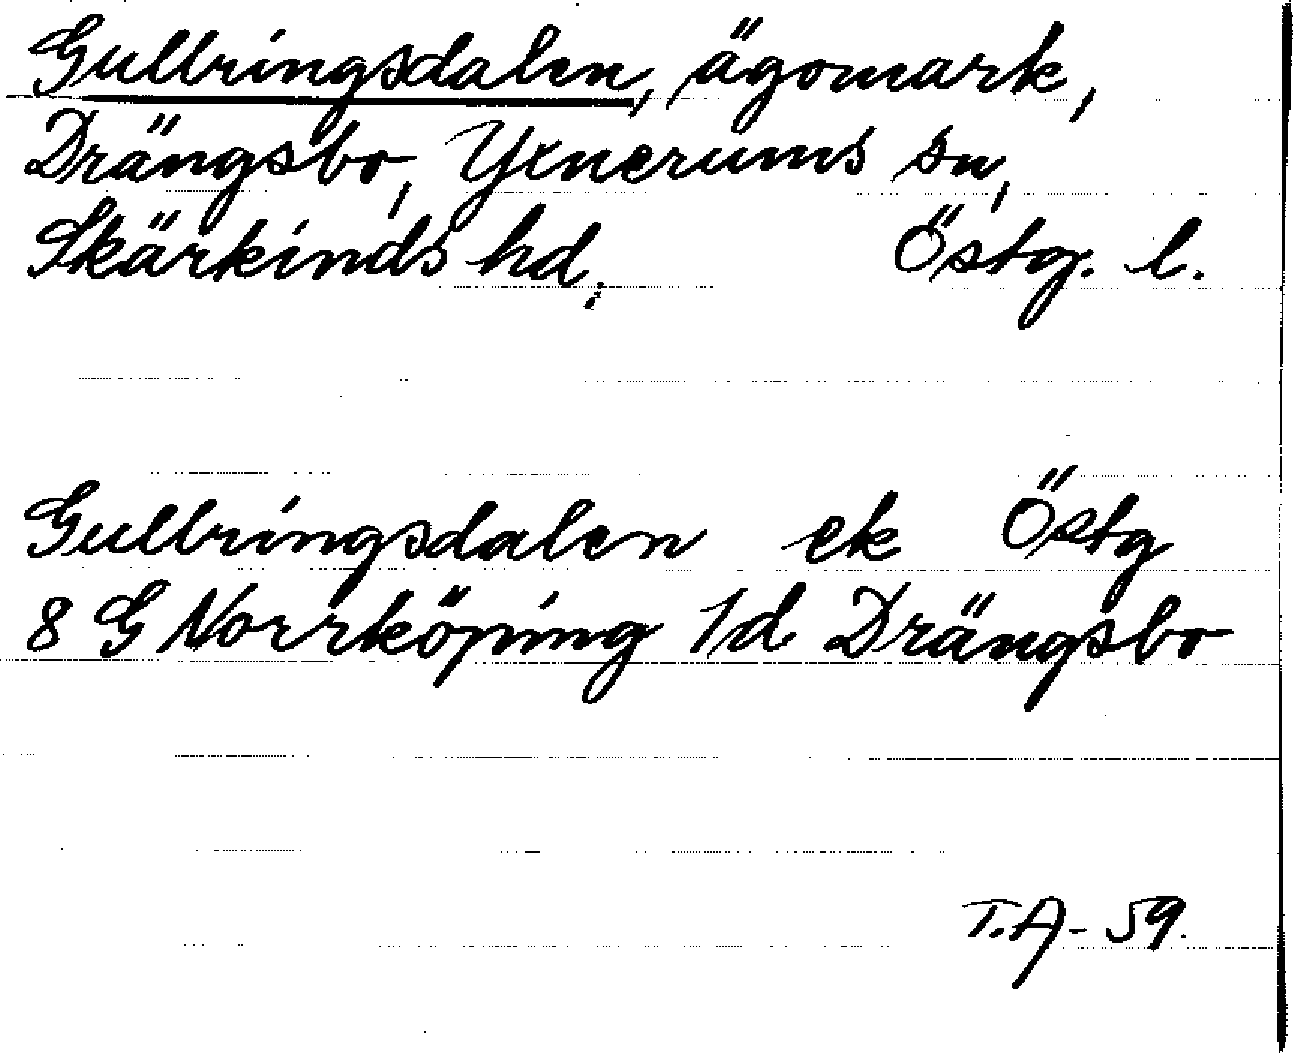 Gullringsdalen, ägomark,
Drängsbo, Yxnerums sn,
Skärkinds hd, Östg. l.
Gullringsdalen ek Östg
8 G Norrköping 1d Drängsbo
T.A- 59.